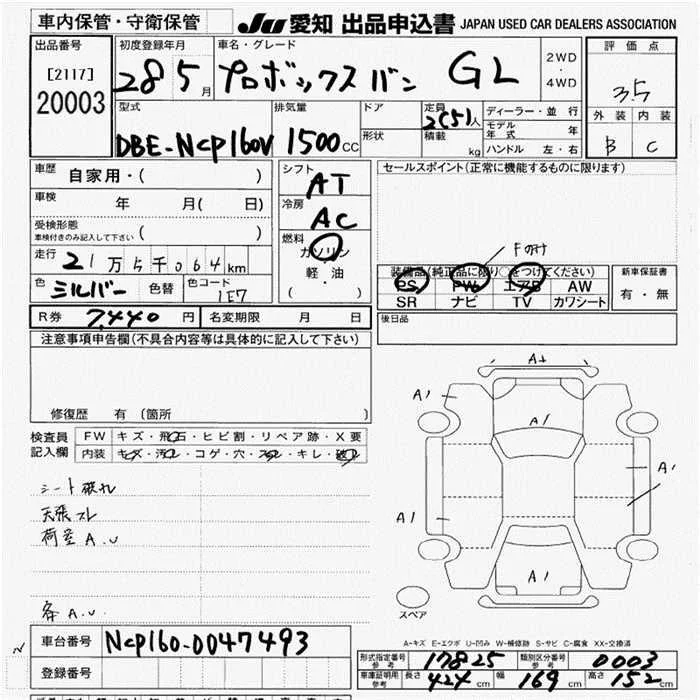 車内保管・守衛保管
JU 愛知 出品申込書 JAPAN USED CAR DEALERS ASSOCIATION
出品番号 初度登録年月 車名・グレード 2WD・4WD 評価点
[2117] 28 5月 プロボックスバン GL 3.5
20003
型式 排気量 ドア 定員 2(5)人 ディーラー・並行 外装 内装
DBE-NCP160V 1500cc 形状 積載 kg モデル年式 年 B C
ハンドル 左・右
車歴 自家用・( ) シフト AT セールスポイント(正常に機能するものに限ります)
車検 年 月( 日) 冷房 AC
受検形態 ( )
車検付きのみ記入して下さい
燃料 ガソリン
走行 21万5千064km 軽・油 Fのみ
( )
装備品(純正品に限り○をつけてください) 新車保証書
色 シルバー 色替 色コード 1E7 PS PW エアB AW 有・無
SR ナビ TV カワシート
R券 7,440円 名変期限 月 日 後日品
注意事項申告欄(不具合内容等は具体的に記入して下さい)
A1 A1
A1
修復歴 有 (箇所 )
検査員 FW キズ・飛石・ヒビ割・リペア跡・X要
記入欄 内装 キズ・汚レ・コゲ・穴・スレ・キレ・破レ
シート破れ A1
天張スレ A1
荷室A.U
A1
スペア
各A.U.
A-キズ E-エクボ U-凹み W-補修跡 S-サビ C-腐食 XX-交換済
車台番号 NCP160-0047493
形式指定番号 参考 17825 類別区分番号 参考 0003
登録番号
車庫証明用 参考 長さ 424cm 幅 169cm 高さ 152cm